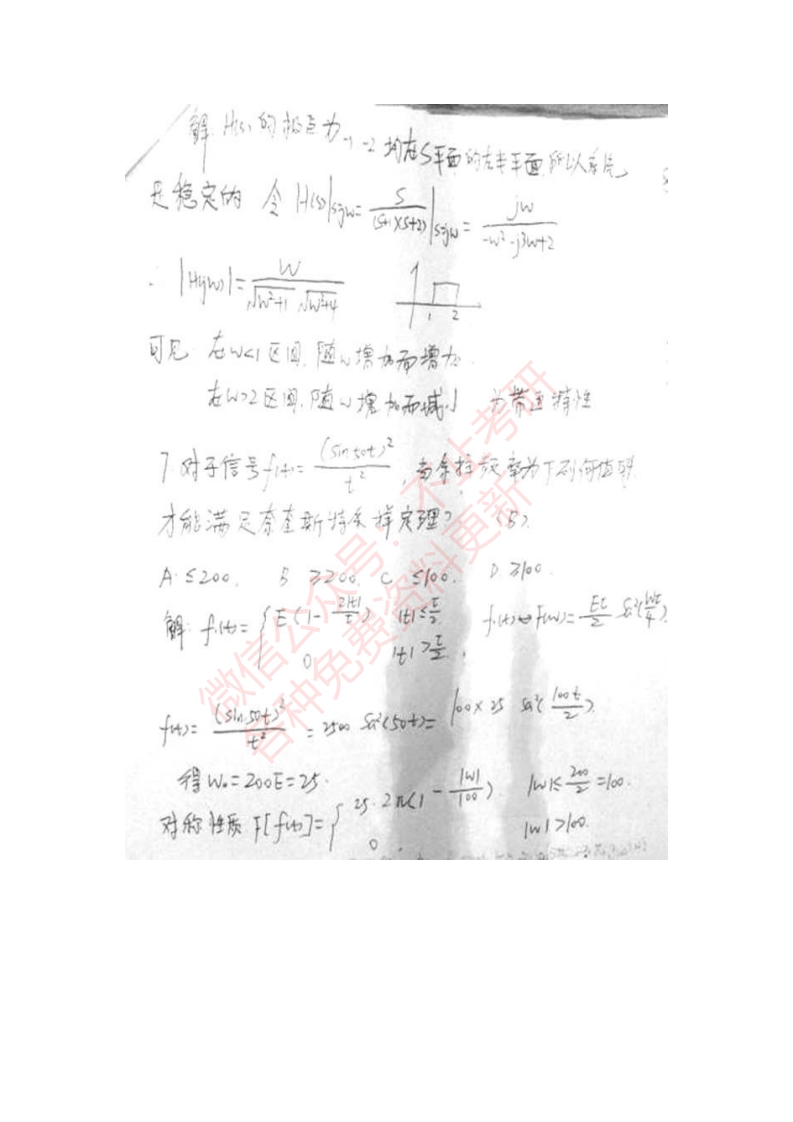 解: H(s)的极点为 -1 -2 均在S平面的左半平面所以系统
是稳定的 令 H(s)|s=jw = S/((S+1)(S+2))|s=jw = jw/(-w²-j3w+2)
∴ |H(jw)| = w/(√(w²+1) √(w²+4)) 1 2
可见 在w<1区间,随w增加而增加.
在w>2区间,随w增加而减小 为带通特性
7.对于信号f(t)=(sin50t)²/t²,当采样频率为下列何值时
才能满足奈奎斯特采样定理? (B).
A. ≤200. B ≥200. C ≤100. D ≥100.
解: f₁(t)= { E(1-2|t|/τ) |t|≤τ/2 f₁(t)↔F(w)=Eτ/2 Sa²(wτ/4)
0 |t|>τ/2.
f(t)=(sin50t)²/t² = 2500 Sa²(50t)= 100×25 Sa²(100t/2)
得W₀=200E=25.
对称性质 F[f(t)]= { 25·2π(1-|w|/100) |w|≤200/2=100.
0. |w|>100.
微信公众号:不止考研
各种免费资料更新